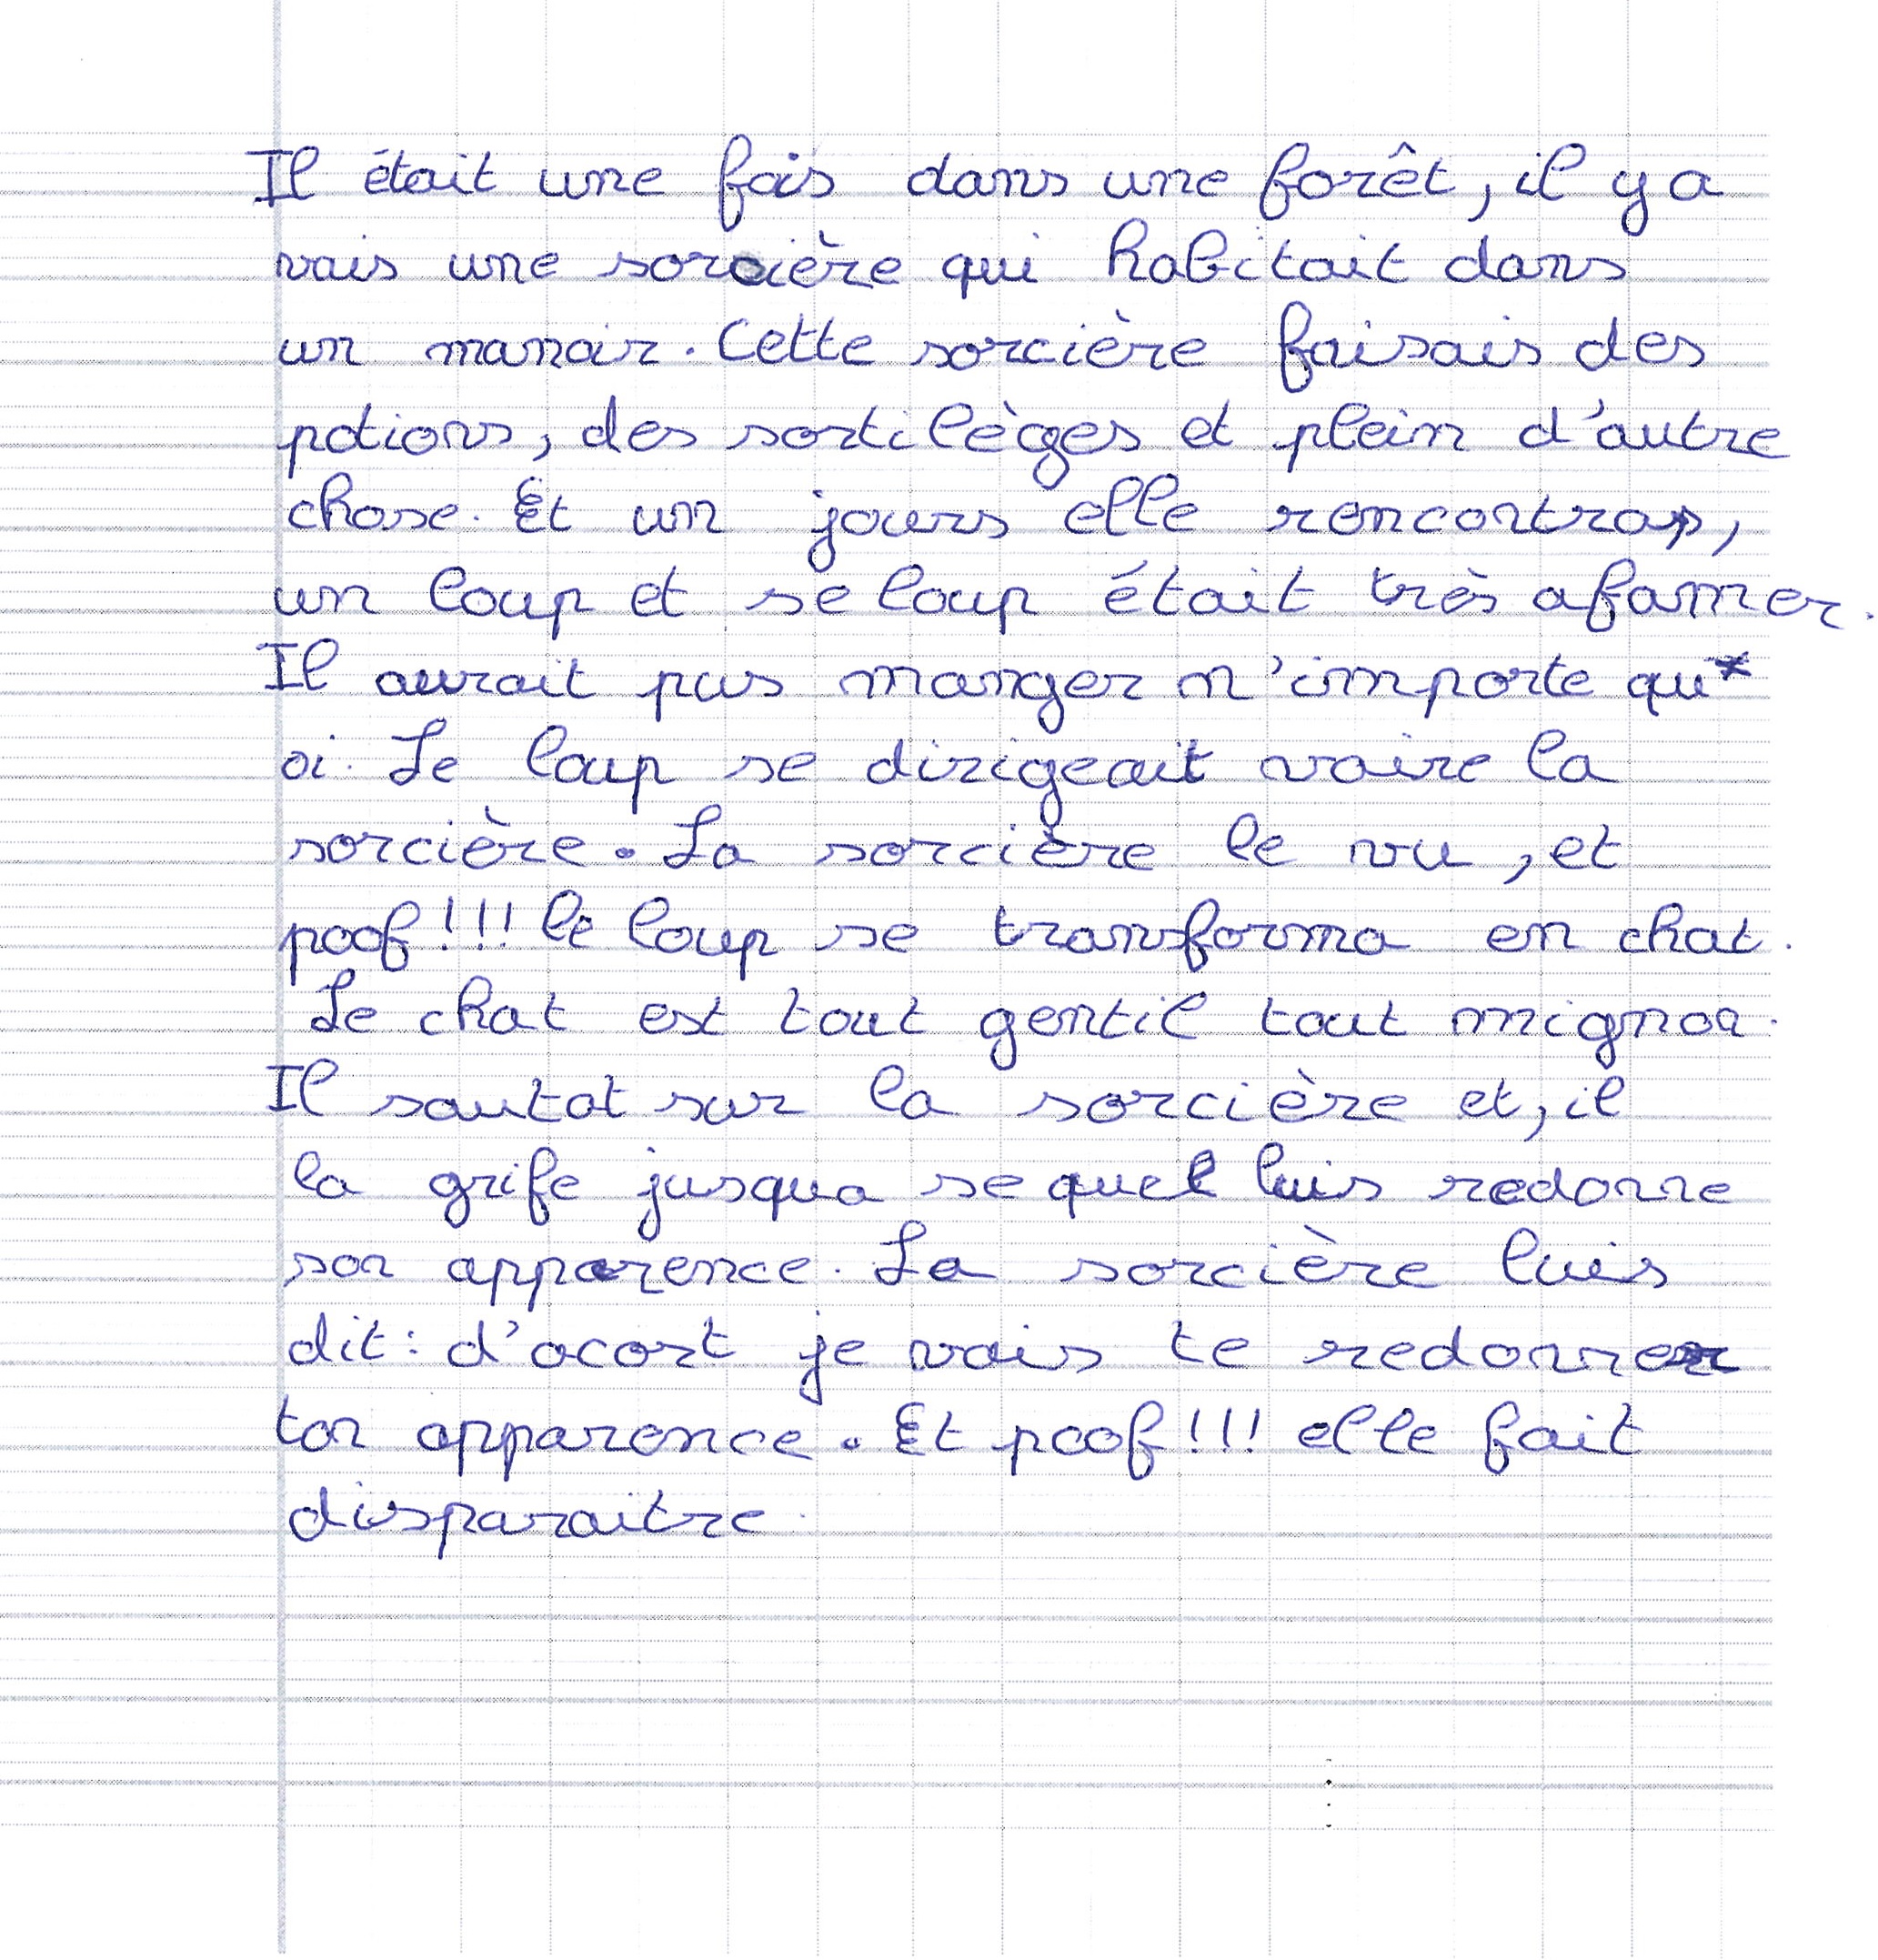 Il était une fois dans une forêt, il y a
vais une sorcière qui habitait dans
un manoir. Cette sorcière faisais des
potions, des sortilèges et plein d'autre
chose. Et un jours elle rencontra,
un loup et se loup était très afamer.
Il aurait pus manger n'importe qu
oi. Le loup se dirigeait voire la
sorcière. La sorcière le vu, et
poof!!! le loup se transforma en chat.
Le chat est tout gentil tout mignon.
Il sautat sur la sorcière et, il
la grife jusqua se quel luis redonne
son apparence. La sorcière luis
dit: d'acort je vais te redonner
ton apparence. Et poof!!! elle fait
disparaitre.